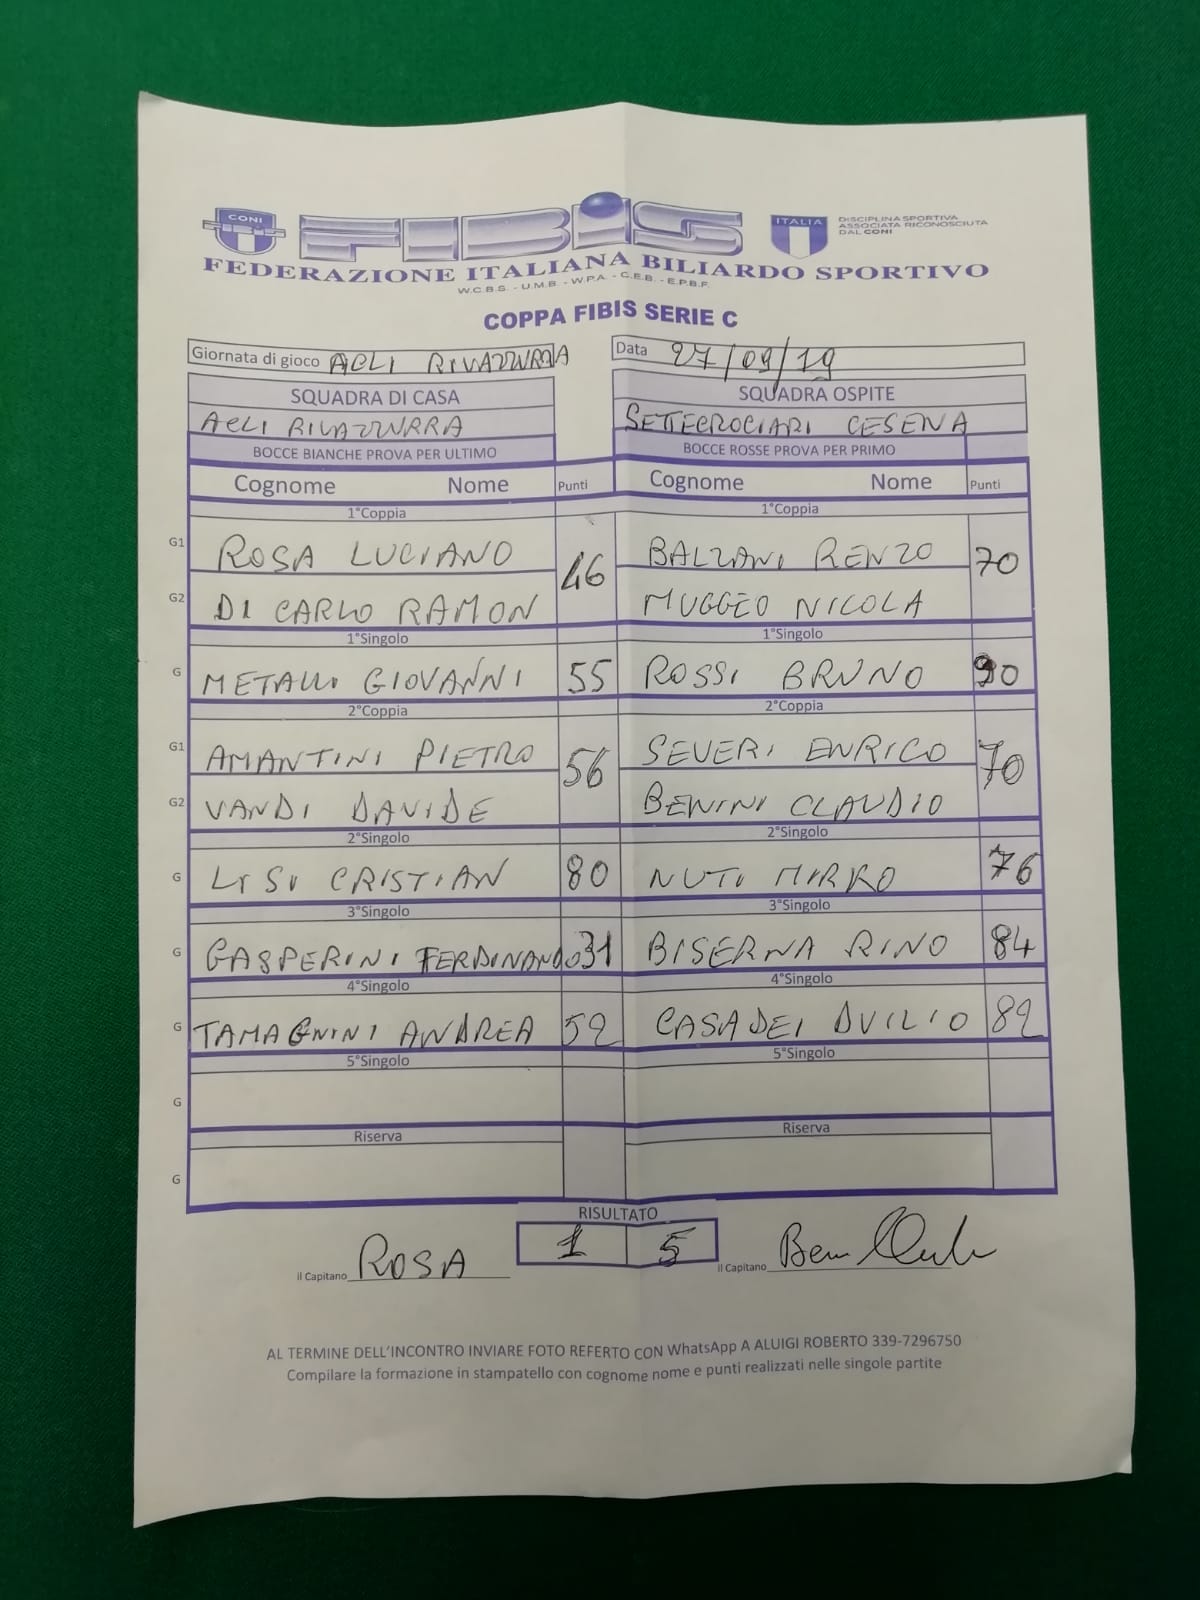 CONI FIBIS ITALIA DISCIPLINA SPORTIVA
ASSOCIATA RICONOSCIUTA
DAL CONI
FEDERAZIONE ITALIANA BILIARDO SPORTIVO
W.C.B.S. - U.M.B. - W.P.A. - C.E.B. - E.P.B.F.
COPPA FIBIS SERIE C
Giornata di gioco ACLI RIVAZZURRA Data 27/09/19
SQUADRA DI CASA SQUADRA OSPITE
ACLI RIVAZZURRA SETTECROCIARI CESENA
BOCCE BIANCHE PROVA PER ULTIMO BOCCE ROSSE PROVA PER PRIMO
Cognome Nome Punti Cognome Nome Punti
1°Coppia 1°Coppia
G1 ROSA LUCIANO 46 BALZANI RENZO 70
G2 DI CARLO RAMON MUGGEO NICOLA
1°Singolo 1°Singolo
G METALLI GIOVANNI 55 ROSSI BRUNO 90
2°Coppia 2°Coppia
G1 AMANTINI PIETRO 56 SEVERI ENRICO 70
G2 VANDI DAVIDE BENINI CLAUDIO
2°Singolo 2°Singolo
G LISI CRISTIAN 80 NUTI MIRKO 76
3°Singolo 3°Singolo
G GASPERINI FERDINANDO 31 BISERNA RINO 84
4°Singolo 4°Singolo
G TAMAGNINI ANDREA 52 CASADEI DUILIO 82
5°Singolo 5°Singolo
G
Riserva Riserva
G
RISULTATO
1 5
il Capitano ROSA il Capitano
AL TERMINE DELL'INCONTRO INVIARE FOTO REFERTO CON WhatsApp A ALUIGI ROBERTO 339-7296750
Compilare la formazione in stampatello con cognome nome e punti realizzati nelle singole partite